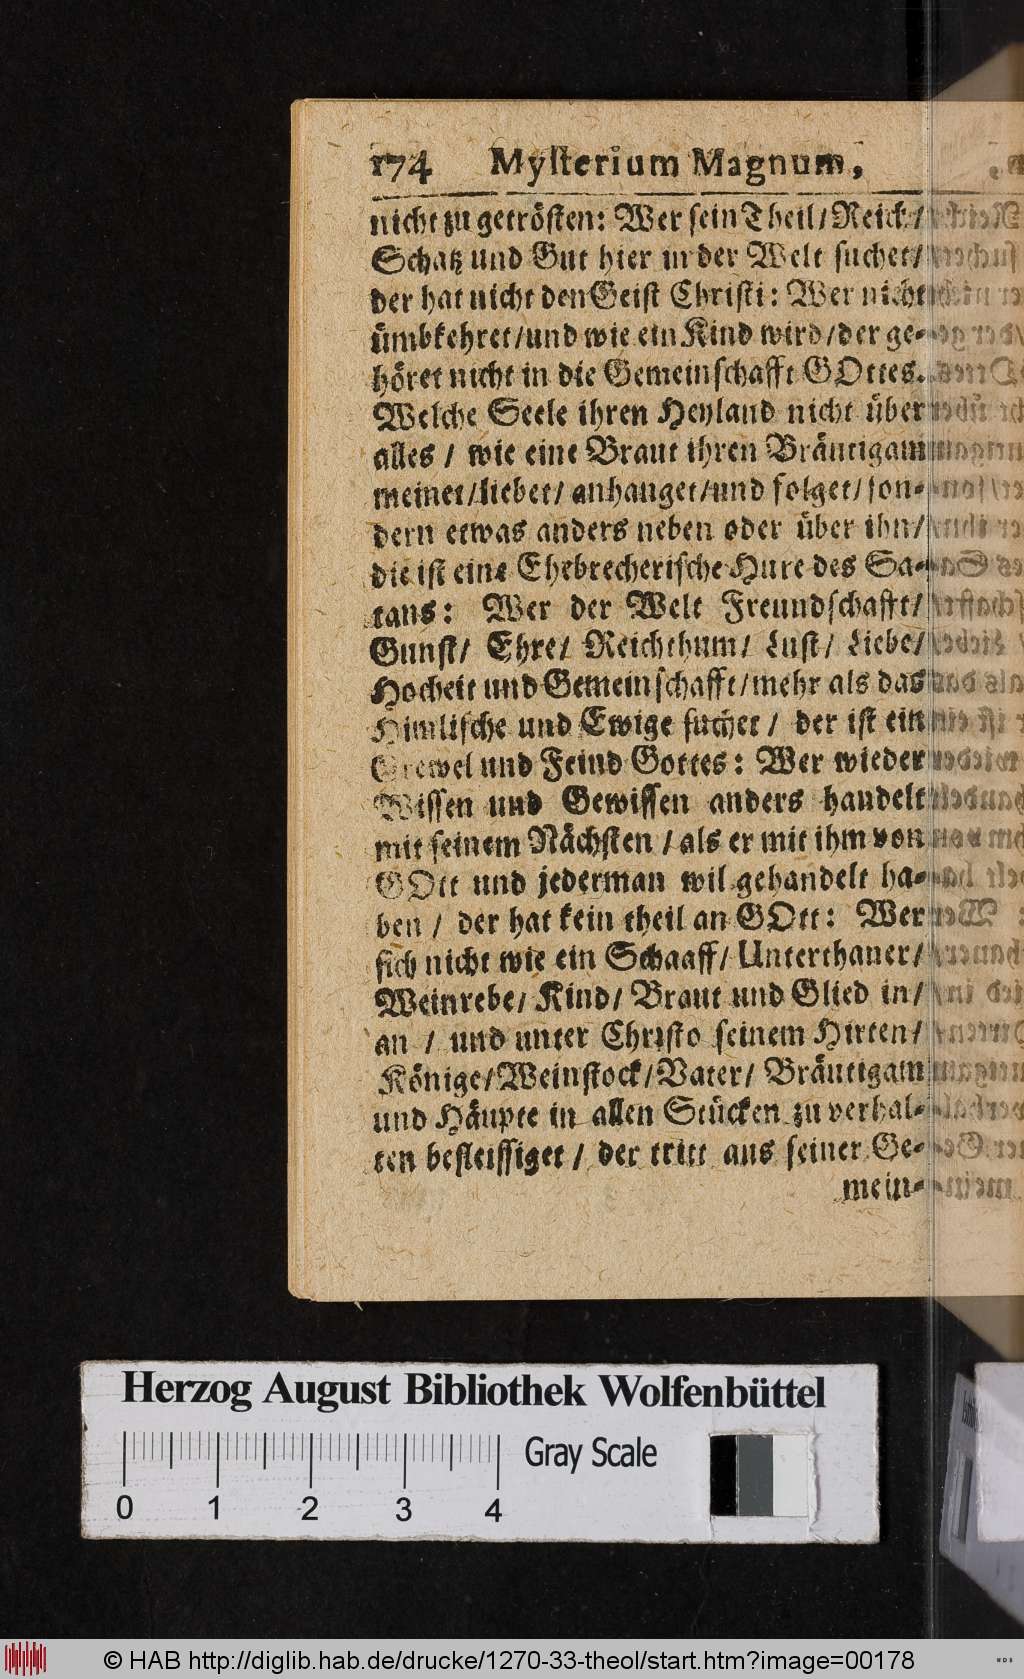 174 Mysterium Magnum,
nicht zu getrösten: Wer sein Theil/ Reich/
Schatz und Gut hier in der Welt suchet/
der hat nicht den Geist Christi: Wer nicht
ümbkehret/und wie ein Kind wird/der ge-
höret nicht in die Gemeinschafft GOttes.
Welche Seele ihren Heyland nicht über
alles / wie eine Braut ihren Bräutigam
meinet/liebet/ anhanget/und folget/ son-
dern etwas anders neben oder über ihn/
die ist eine Ehebrecherische Hure des Sa-
tans: Wer der Welt Freundschafft/
Gunst/ Ehre/ Reichthum/ Lust/ Liebe/
Hocheit und Gemeinschafft/mehr als das
Himlische und Ewige suchet / der ist ein
Grewel und Feind Gottes: Wer wieder
Wissen und Gewissen anders handelt
mit seinem Nächsten / als er mit ihm von
GOtt und jederman wil gehandelt ha-
ben / der hat kein theil an GOtt: Wer
sich nicht wie ein Schaaff/ Unterthaner/
Weinrebe/ Kind/ Braut und Glied in/
an / und unter Christo seinem Hirten/
Könige/Weinstock/Vater/ Bräutigam
und Häupte in allen Stücken zu verhal-
ten befleissiget / der tritt aus seiner Ge-
mein-
Herzog August Bibliothek Wolfenbüttel
Gray Scale
0 1 2 3 4
© HAB http://diglib.hab.de/drucke/1270-33-theol/start.htm?image=00178